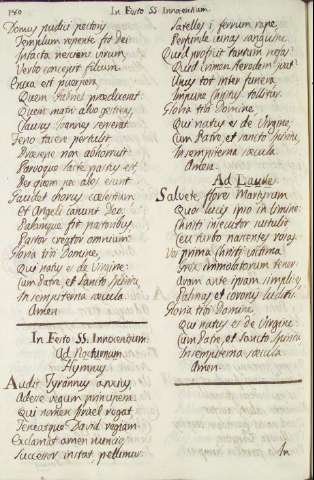 140
In Festo SS. Innocentium
Domus pudici pectoris
Templum repente fit Dei
Intacta nesciens virum
Verbo concepit filium.
Enixa est puerpera
Quem Gabriel prædixerat
Quem matris alvo gestiens
Clausus Joannes senserat
Feno jacere pertulit
Præsepe non abhorruit
Parvoque lacte pastus est
Per quem nec ales esurit
Gaudet chorus cœlestium
Et Angeli canunt Deo,
Palamque fit pastoribus
Pastor creator omnium
Gloria tibi Domine,
Qui natus es de Virgine:
Cum Patre, et sancto Spiritu
In sempiterna sæcula
Amen.
In Festo SS. Innocentium.
Ad Nocturnum
Hymnus
Audit Tyrannus anxius,
Adesse regum principem
Qui nomen Israel regat
Teneatque David regiam.
Exclamat amens nuncio,
Successor instat, pellimur.
Satelles i, ferrum rape
Perfunde cunas sanguine
Quid proficit tantum nefas
Quid crimen Herodem juvat
Unus tot inter funera
Impune Christus tollitur.
Gloria tibi Domine
Qui natus es de Virgine,
Cum Patre, et sancto Spiritu,
In sempiterna sæcula
Amen.
Ad Laudes
Salvete flores Martyrum
Quos lucis ipso in limine:
Christi insecutor sustulit
Ceu turbo nascentes rosas.
Vos prima Christi victima
Grex immolatorum tener:
Aram ante ipsam simplices
Palma, et coronis luditis
Gloria tibi Domine
Qui natus es de Virgine:
Cum Patre, et Sancto Spiritu,
In sempiterna sæcula
Amen.
In